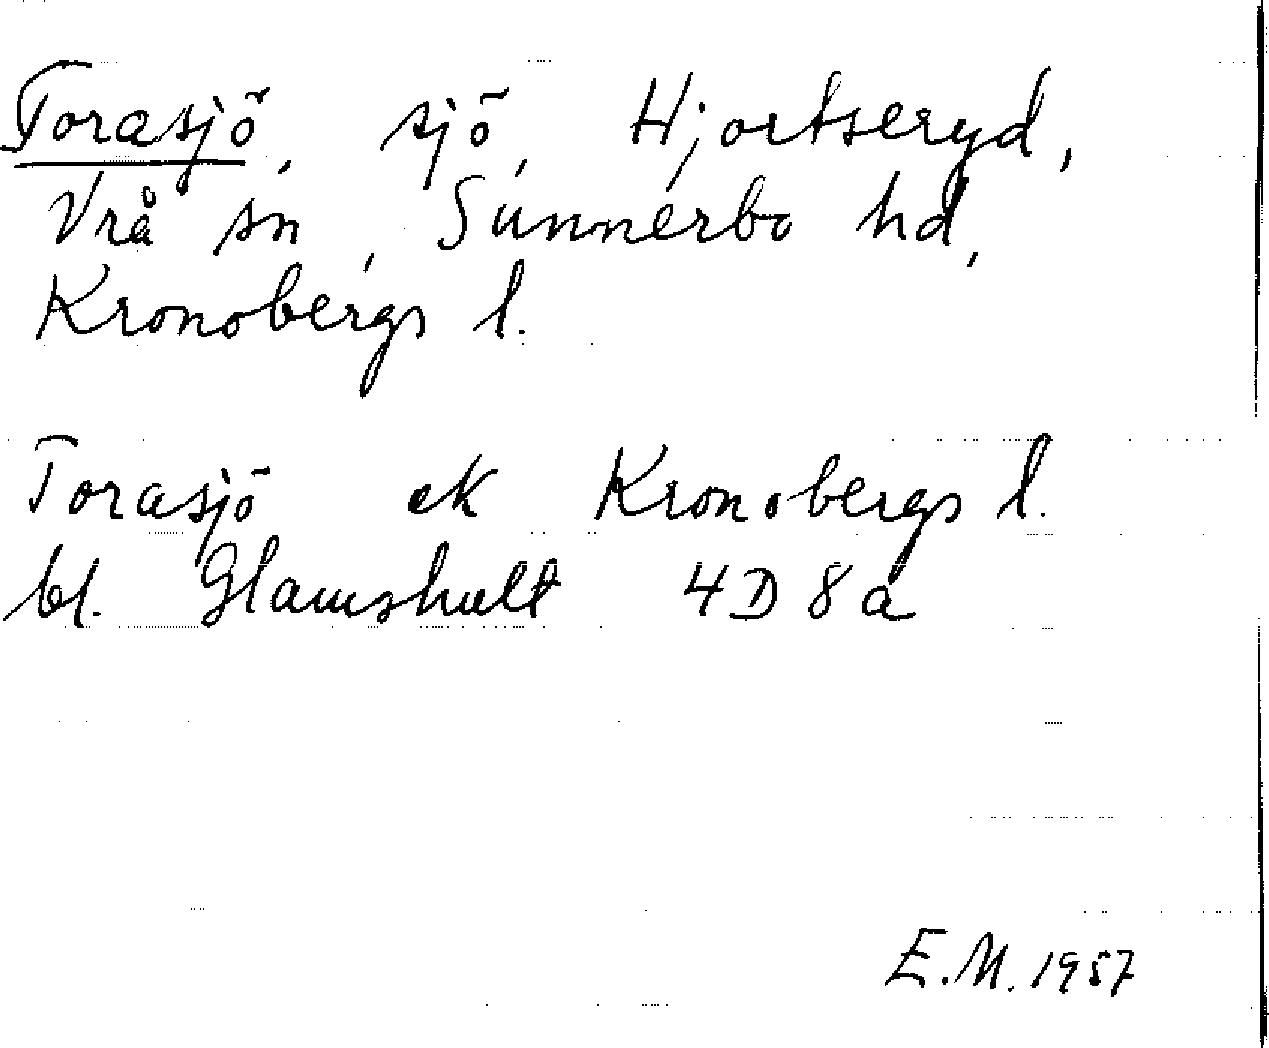 Torasjö, sjö, Hjortseryd,
Vrå sn, Sunnerbo hd,
Kronobergs l.
Torasjö ek Kronobergs l.
bl. Glamshult 4D 8a
E.M. 1957